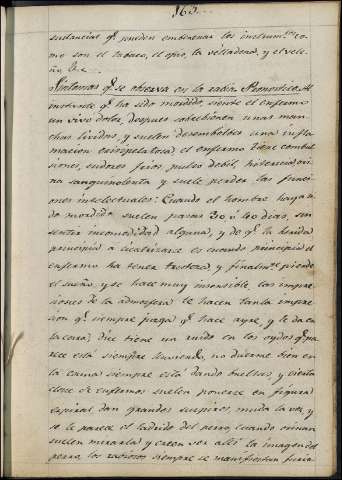 163
sustancias q.e pueden embenenar los instrum.tos co-
mo son el tabaco, el opio, la belladona, y el vele-
ño, &c.
Sintomas q.e se observa en la rabia Pronostico. Al
instante q.e ha sido mordido, siente el enfermo
un vivo dolor, despues sobebienen unas man-
chas lividas, y suelen desembolberse una infla-
macion erisipelatosa el enfermo tiene combul-
siones, sudores frios, pulso debil, histericia, ori-
na sanguinolenta y suele perder las funci-
ones intelectuales: Cuando el hombre haya si-
do mordido suelen pasar 30 ó 40 dias, sin
sentir incomodidad alguna, y de q.e la herida
principia a cicatrizarse es cuando principia el
enfermo ha tener tristeza y finalm.te pierde
el sueño, y se hace muy insensible, las impre-
siones de la admosfera le hacen tanta impre-
cion q.e siempre juzga q.e hace ayre, y le da en
la cara; dice tiene un ruido en los oydos q.e pa-
rece está siempre lloviendo, no duerme bien en
la cama siempre está dando bueltas, y cierta
clase de enfermos suelen ponerse en figura
espiral dan grandes suspiros, muda la voz, y
se le parece el ladrido del perro, cuando orinan
suelen mirarla y creen ver allí la imagen del
perro, los rabiosos siempre se manifiestan furio-